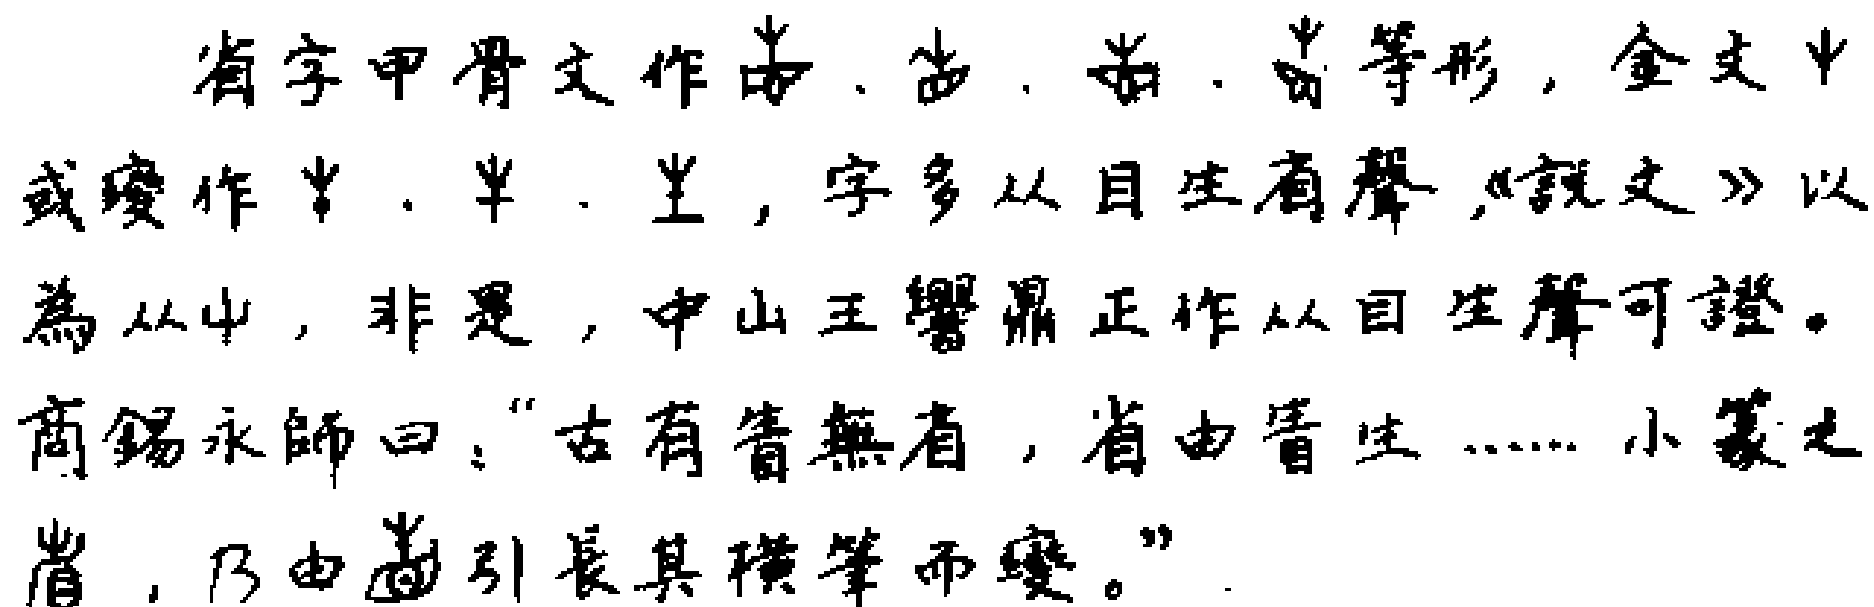 省字甲骨文作、、、等形，金文屮
或變作、、，字多从目生省聲，《説文》以
為从屮，非是，中山王鼎正作从目生聲可證。
商錫永師曰：“古有眚無省，省由眚生……小篆之
，乃由引長其橫筆而變。”